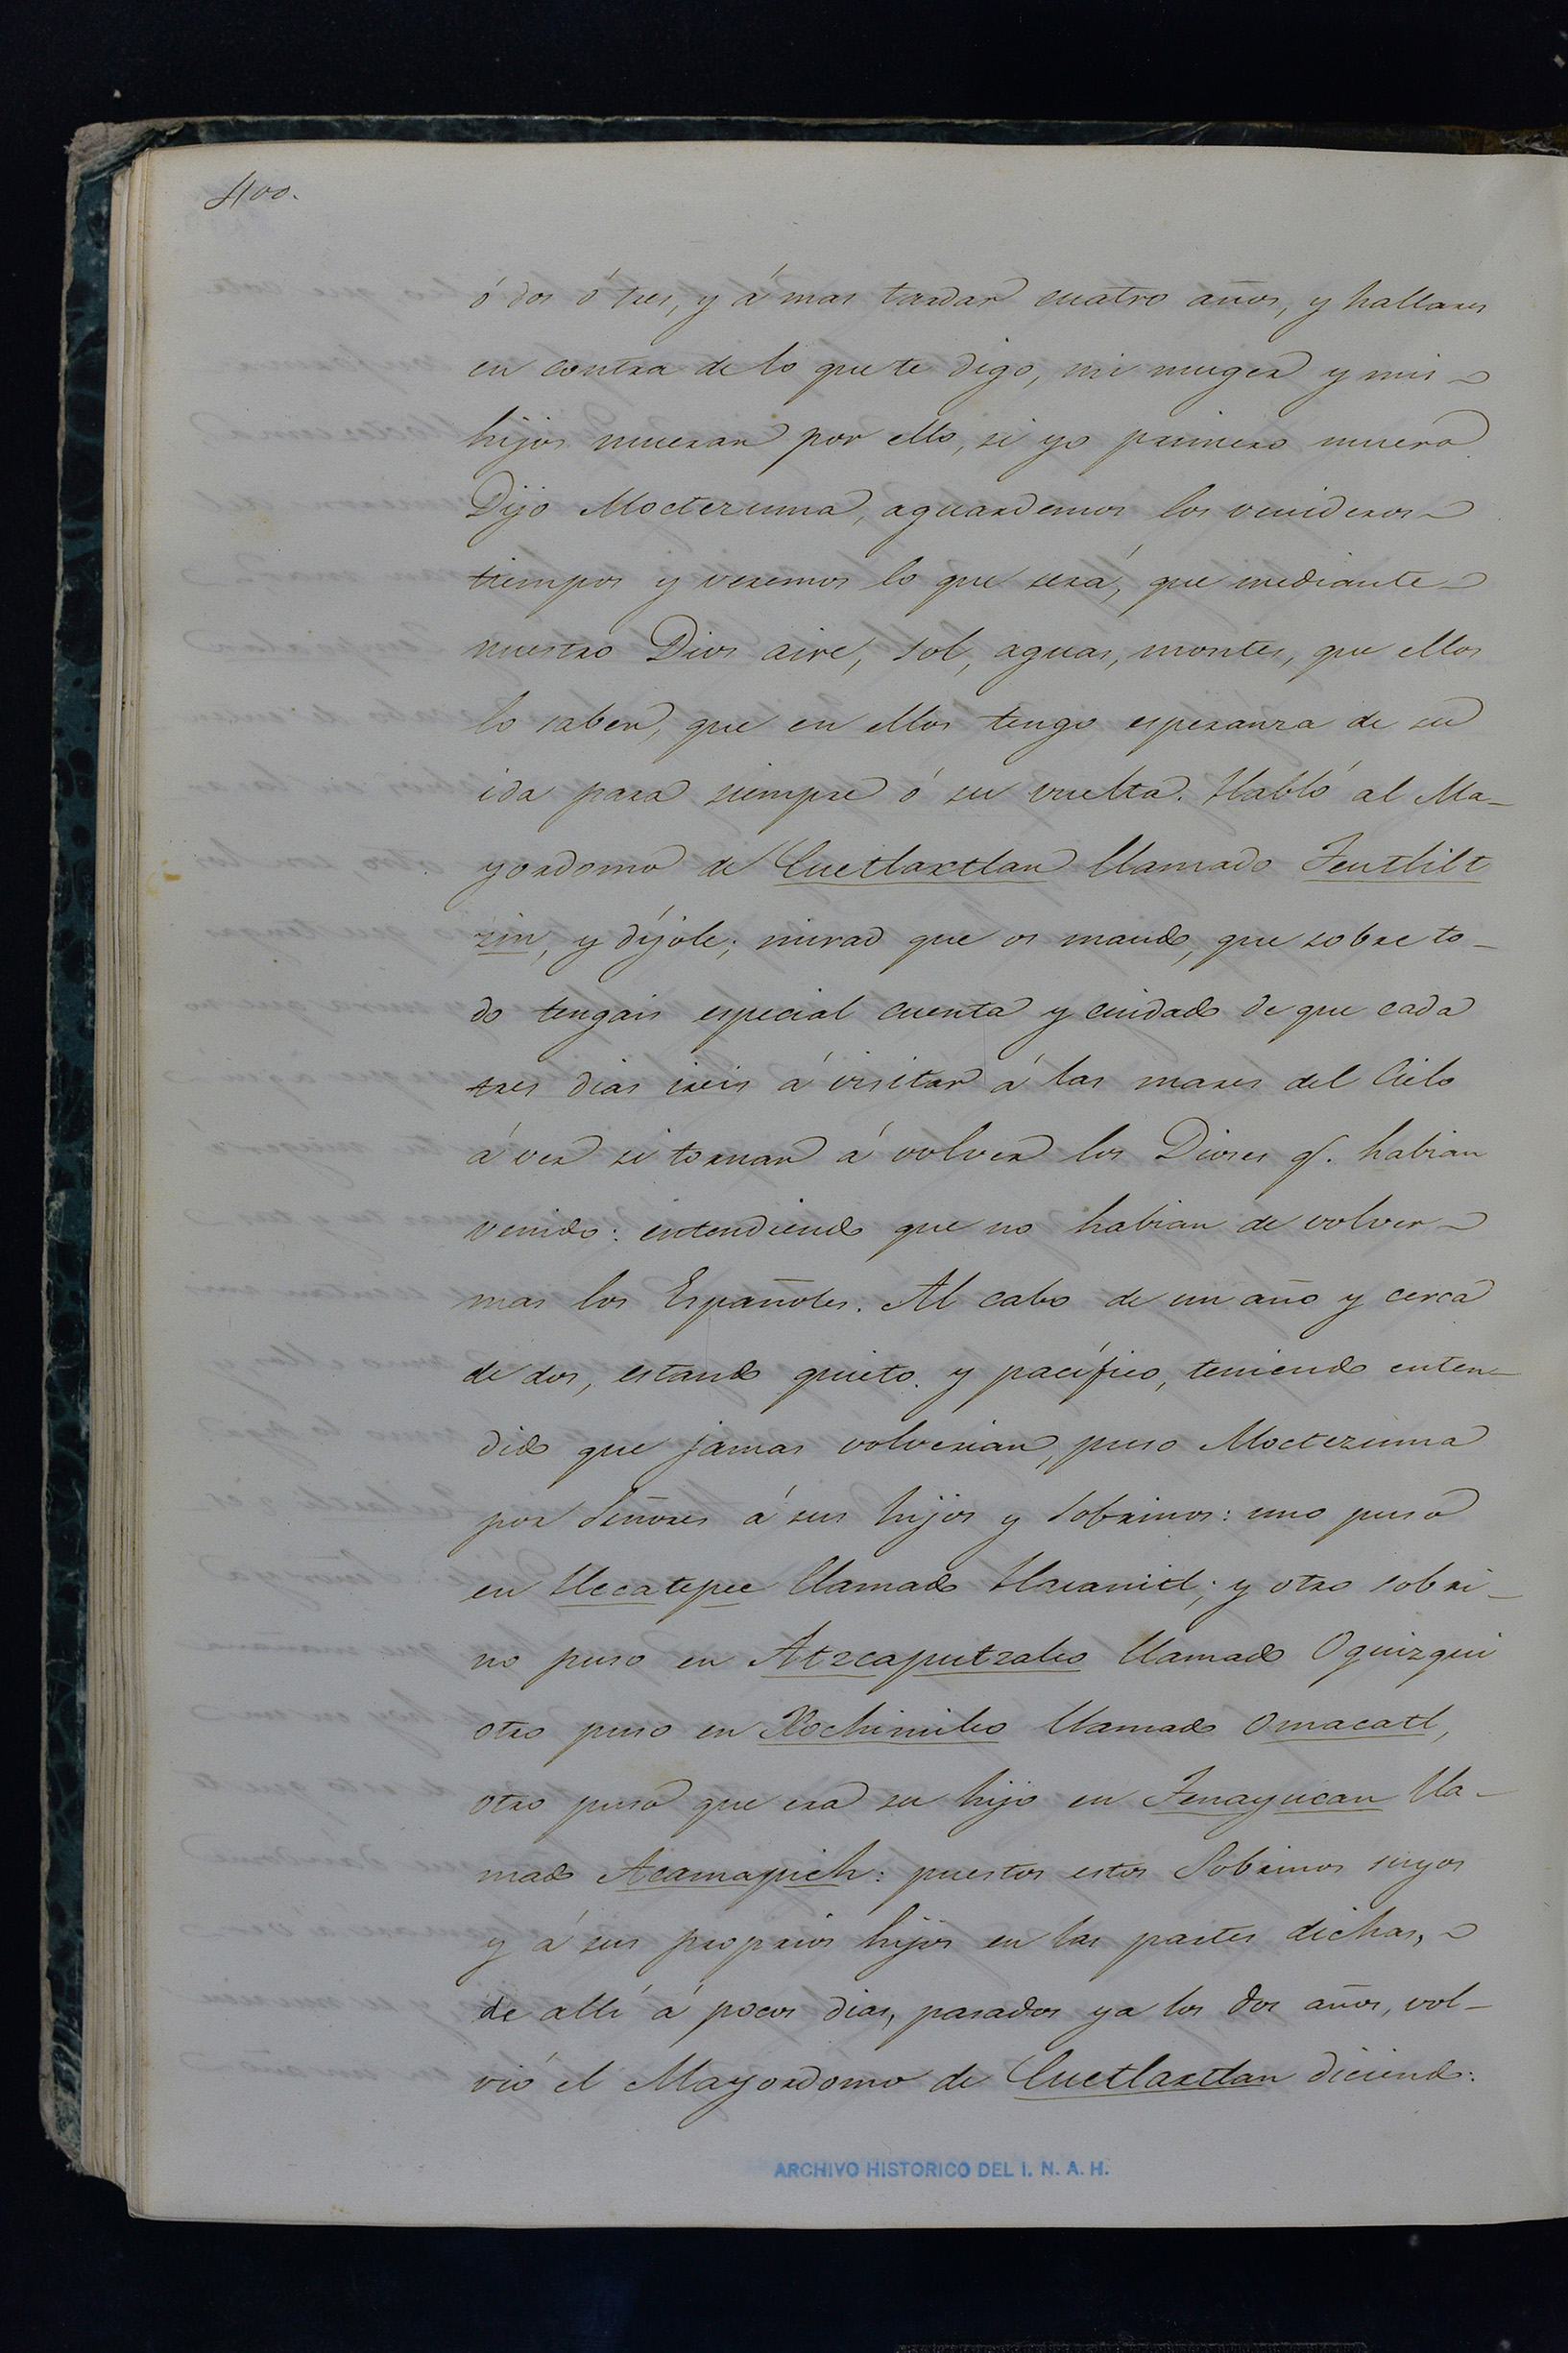 400.
ó dos ó tres, y á mas tardar cuatro años, y hallares
en contra de lo que te digo, mi muger y mis
hijos mueran por ello, si yo primero muero
Dijo Moctezuma, aguardemos los venideros
tiempos y veremos lo que será, que mediante
nuestro Dios aire, sol, aguas, montes, que ellos
lo saben, que en ellos tengo esperanza de su
ida para siempre ó su vuelta. Habló al Ma-
yordomo de Cuetlaxtlan llamado Teutlilt
zin, y díjole; mirad que os mando, que sobre to-
do tengais especial cuenta y cuidado de que cada
tres dias ireis á visitar á las mares del Cielo
á ver si tornan á volver los Dioses q. habian
venido: entendiendo que no habian de volver
mas los Españoles. Al cabo de un año y cerca
de dos, estando quieto y pacífico, teniendo enten-
dido que jamas volverian, puso Moctezuma
por Señores á sus hijos y Sobrinos: uno puso
en Hecatepec llamado Huanitl; y otro sobri-
no puso en Atzcaputzalco llamado Oquizqui
otro puso en Xochimilco llamado Omacatl,
otro puso que era su hijo en Tenayucan lla-
mado Acamapich: puestos estos Sobrinos suyos
y á sus proprios hijos en las partes dichas,
de allí á pocos dias, pasados ya los dos años, vol-
vió el Mayordomo de Cuetlaxtlan diciendo:
ARCHIVO HISTORICO DEL I. N. A. H.